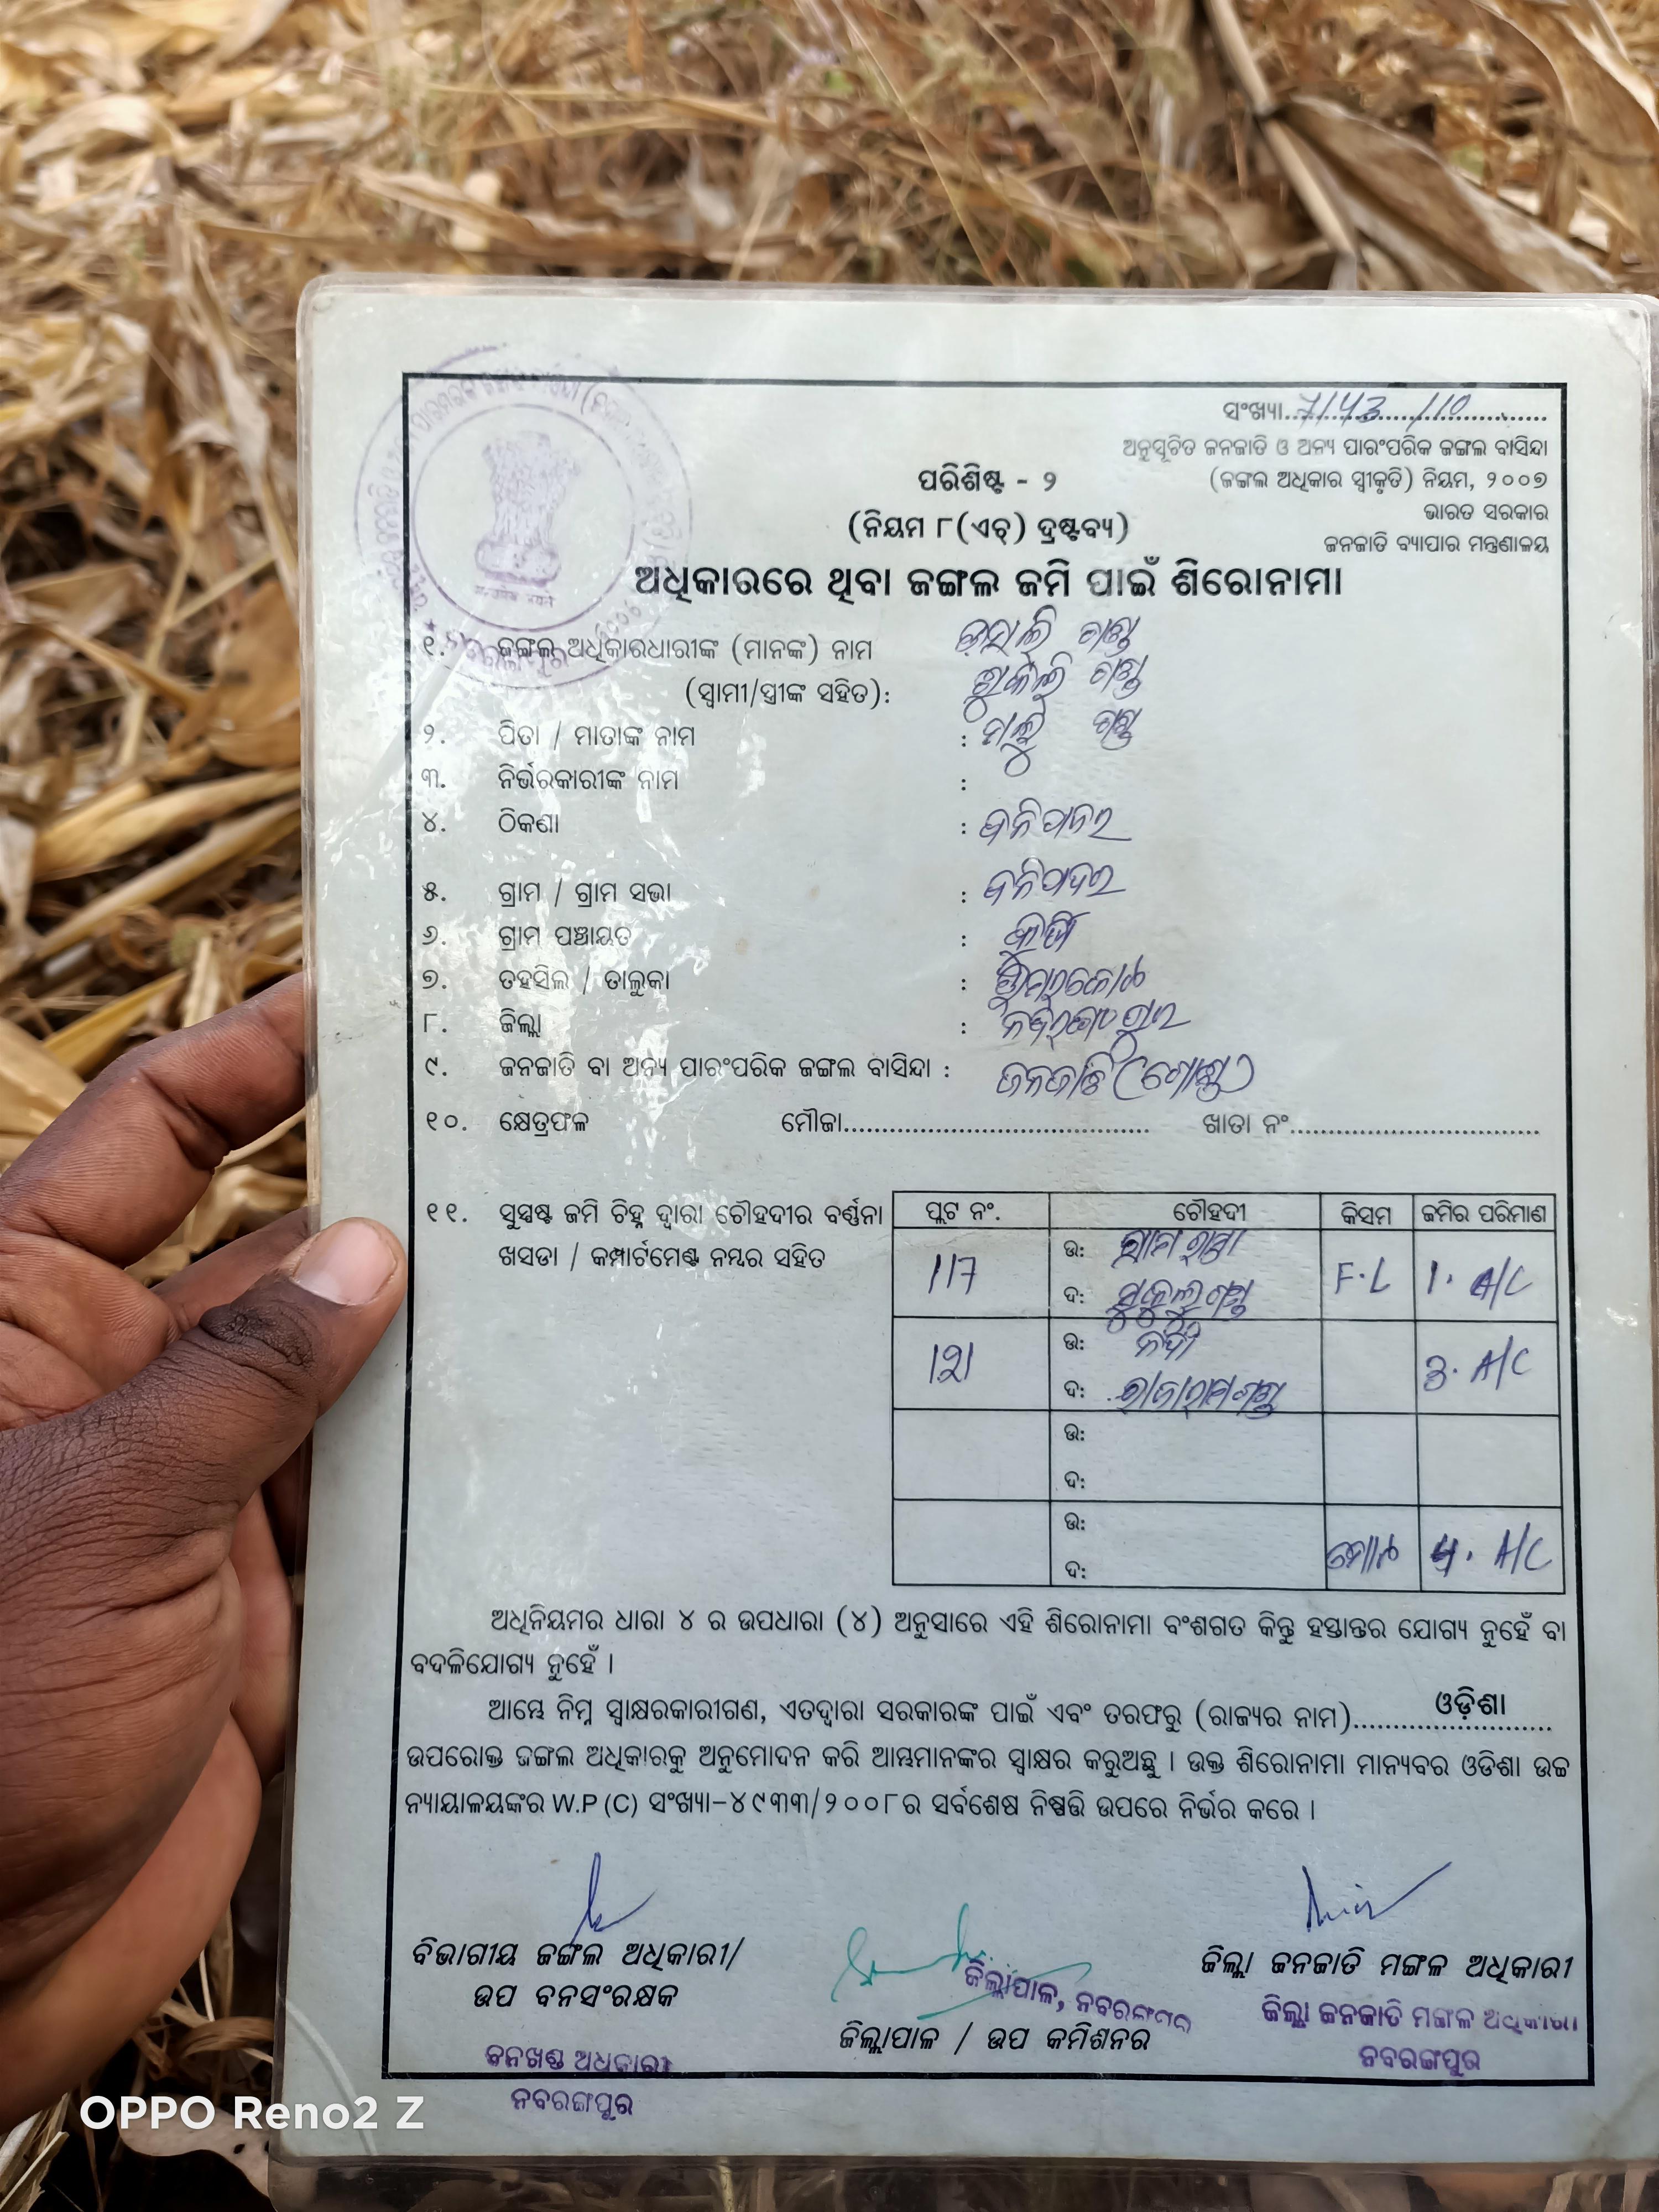 ସଂଖ୍ୟା..7143../10..
ଅନୁସୂଚିତ ଜନଜାତି ଓ ଅନ୍ୟ ପାରଂପରିକ ଜଙ୍ଗଲ ବାସିନ୍ଦା
(ଜଙ୍ଗଲ ଅଧିକାର ସ୍ୱୀକୃତି) ନିୟମ, ୨୦୦୭
ଭାରତ ସରକାର
ଜନଜାତି ବ୍ୟାପାର ମନ୍ତ୍ରଣାଳୟ
ପରିଶିଷ୍ଟ - ୨
(ନିୟମ ୮(ଏଚ୍) ଦ୍ରଷ୍ଟବ୍ୟ)
ଅଧିକାରରେ ଥିବା ଜଙ୍ଗଲ ଜମି ପାଇଁ ଶିରୋନାମା
୧. ଜଙ୍ଗଲ ଅଧିକାରଧାରୀଙ୍କ (ମାନଙ୍କ) ନାମ ଗଣ୍ଡ
(ସ୍ୱାମୀ/ସ୍ତ୍ରୀଙ୍କ ସହିତ): ଗଣ୍ଡ
୨. ପିତା / ମାତାଙ୍କ ନାମ : ଗଣ୍ଡ
୩. ନିର୍ଭରକାରୀଙ୍କ ନାମ :
୪. ଠିକଣା :
୫. ଗ୍ରାମ / ଗ୍ରାମ ସଭା :
୬. ଗ୍ରାମ ପଞ୍ଚାୟତ :
୭. ତହସିଲ / ତାଲୁକା :
୮. ଜିଲ୍ଲା : ନବରଂଗପୁର
୯. ଜନଜାତି ବା ଅନ୍ୟ ପାରଂପରିକ ଜଙ୍ଗଲ ବାସିନ୍ଦା : ଜନଜାତି (ଗୋଣ୍ଡ)
୧୦. କ୍ଷେତ୍ରଫଳ ମୌଜା........................................ ଖାତା ନଂ................................
୧୧. ସୁସ୍ପଷ୍ଟ ଜମି ଚିହ୍ନ ଦ୍ୱାରା ଚୌହଦୀର ବର୍ଣ୍ଣନା
ଖସଡା / କମ୍ପାର୍ଟମେଣ୍ଟ ନମ୍ବର ସହିତ
ପ୍ଲଟ ନଂ. ଚୌହଦୀ କିସମ ଜମିର ପରିମାଣ
117 ଉ: F.L 1. A/C
ଦ:
121 ଉ: ନଦୀ 3. A/C
ଦ: ରାଜାରାମ ଗଣ୍ଡ
ଉ:
ଦ:
ଉ: ମୋଟ 4. A/C
ଦ:
ଅଧିନିୟମର ଧାରା ୪ ର ଉପଧାରା (୪) ଅନୁସାରେ ଏହି ଶିରୋନାମା ବଂଶଗତ କିନ୍ତୁ ହସ୍ତାନ୍ତର ଯୋଗ୍ୟ ନୁହେଁ ବା
ବଦଳିଯୋଗ୍ୟ ନୁହେଁ ।
ଆମ୍ଭେ ନିମ୍ନ ସ୍ୱାକ୍ଷରକାରୀଗଣ, ଏତଦ୍ୱାରା ସରକାରଙ୍କ ପାଇଁ ଏବଂ ତରଫରୁ (ରାଜ୍ୟର ନାମ)....ଓଡ଼ିଶା....
ଉପରୋକ୍ତ ଜଙ୍ଗଲ ଅଧିକାରକୁ ଅନୁମୋଦନ କରି ଆମ୍ଭମାନଙ୍କର ସ୍ୱାକ୍ଷର କରୁଅଛୁ । ଉକ୍ତ ଶିରୋନାମା ମାନ୍ୟବର ଓଡିଶା ଉଚ୍ଚ
ନ୍ୟାୟାଳୟଙ୍କର W.P (C) ସଂଖ୍ୟା-୪୯୩୩/୨୦୦୮ର ସର୍ବଶେଷ ନିଷ୍ପତ୍ତି ଉପରେ ନିର୍ଭର କରେ ।
ବିଭାଗୀୟ ଜଙ୍ଗଲ ଅଧିକାରୀ/
ଉପ ବନସଂରକ୍ଷକ
ବନଖଣ୍ଡ ଅଧିକାରୀ
ନବରଙ୍ଗପୁର
ଜିଲ୍ଲାପାଳ, ନବରଙ୍ଗପୁର
ଜିଲ୍ଲାପାଳ / ଉପ କମିଶନର
ଜିଲ୍ଲା ଜନଜାତି ମଙ୍ଗଳ ଅଧିକାରୀ
ଜିଲ୍ଲା ଜନଜାତି ମଙ୍ଗଳ ଅଧିକାରୀ
ନବରଙ୍ଗପୁର
OPPO Reno2 Z